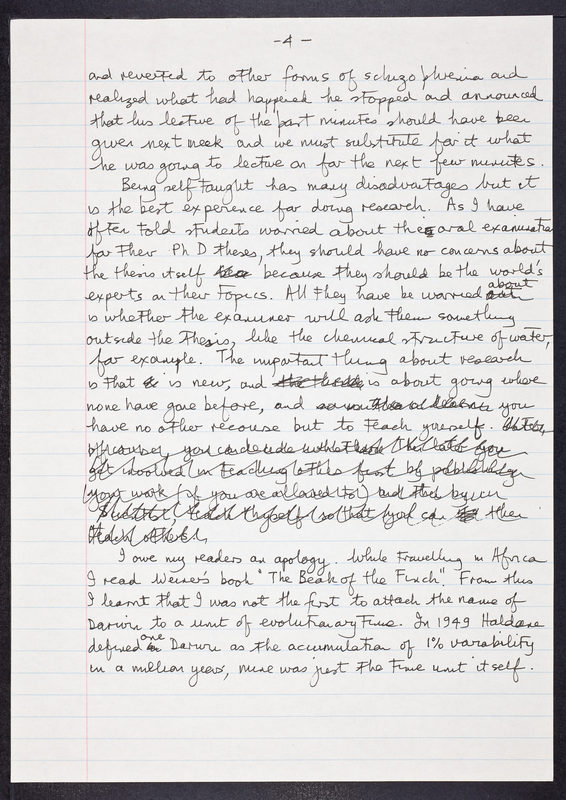 - 4 -
and reverted to other forms of schizophrenia and
realized what had happened he stopped and announced
that his lecture of the past minutes should have been
given next week and we must substitute for it what
he was going to lecture on for the next few minutes.
Being self taught has many disadvantages but it
is the best experience for doing research. As I have
often told students worried about their oral examination
for their PhD theses, they should have no concerns about
the thesis itself because they should be the world's
experts on their topics. All they have be worried about
is whether the examiner will ask them something
outside the thesis, like the chemical structure of water,
for example. The important thing about research
is that is new, and is about going where
none have gone before, and you
have no other recourse but to teach yourself.
of course, you
get involved in teaching others first by
your work (if you are allowed to) and then by
teach thyself so that you can then
teach others.
I owe my readers an apology. While travelling in Africa
I read Weiner's book "The Beak of the Finch". From this
I learnt that I was not the first to attach the name of
Darwin to a unit of evolutionary time. In 1949 Haldane
defined one Darwin as the accumulation of 1% variability
in a million years, mine was just the time unit itself.